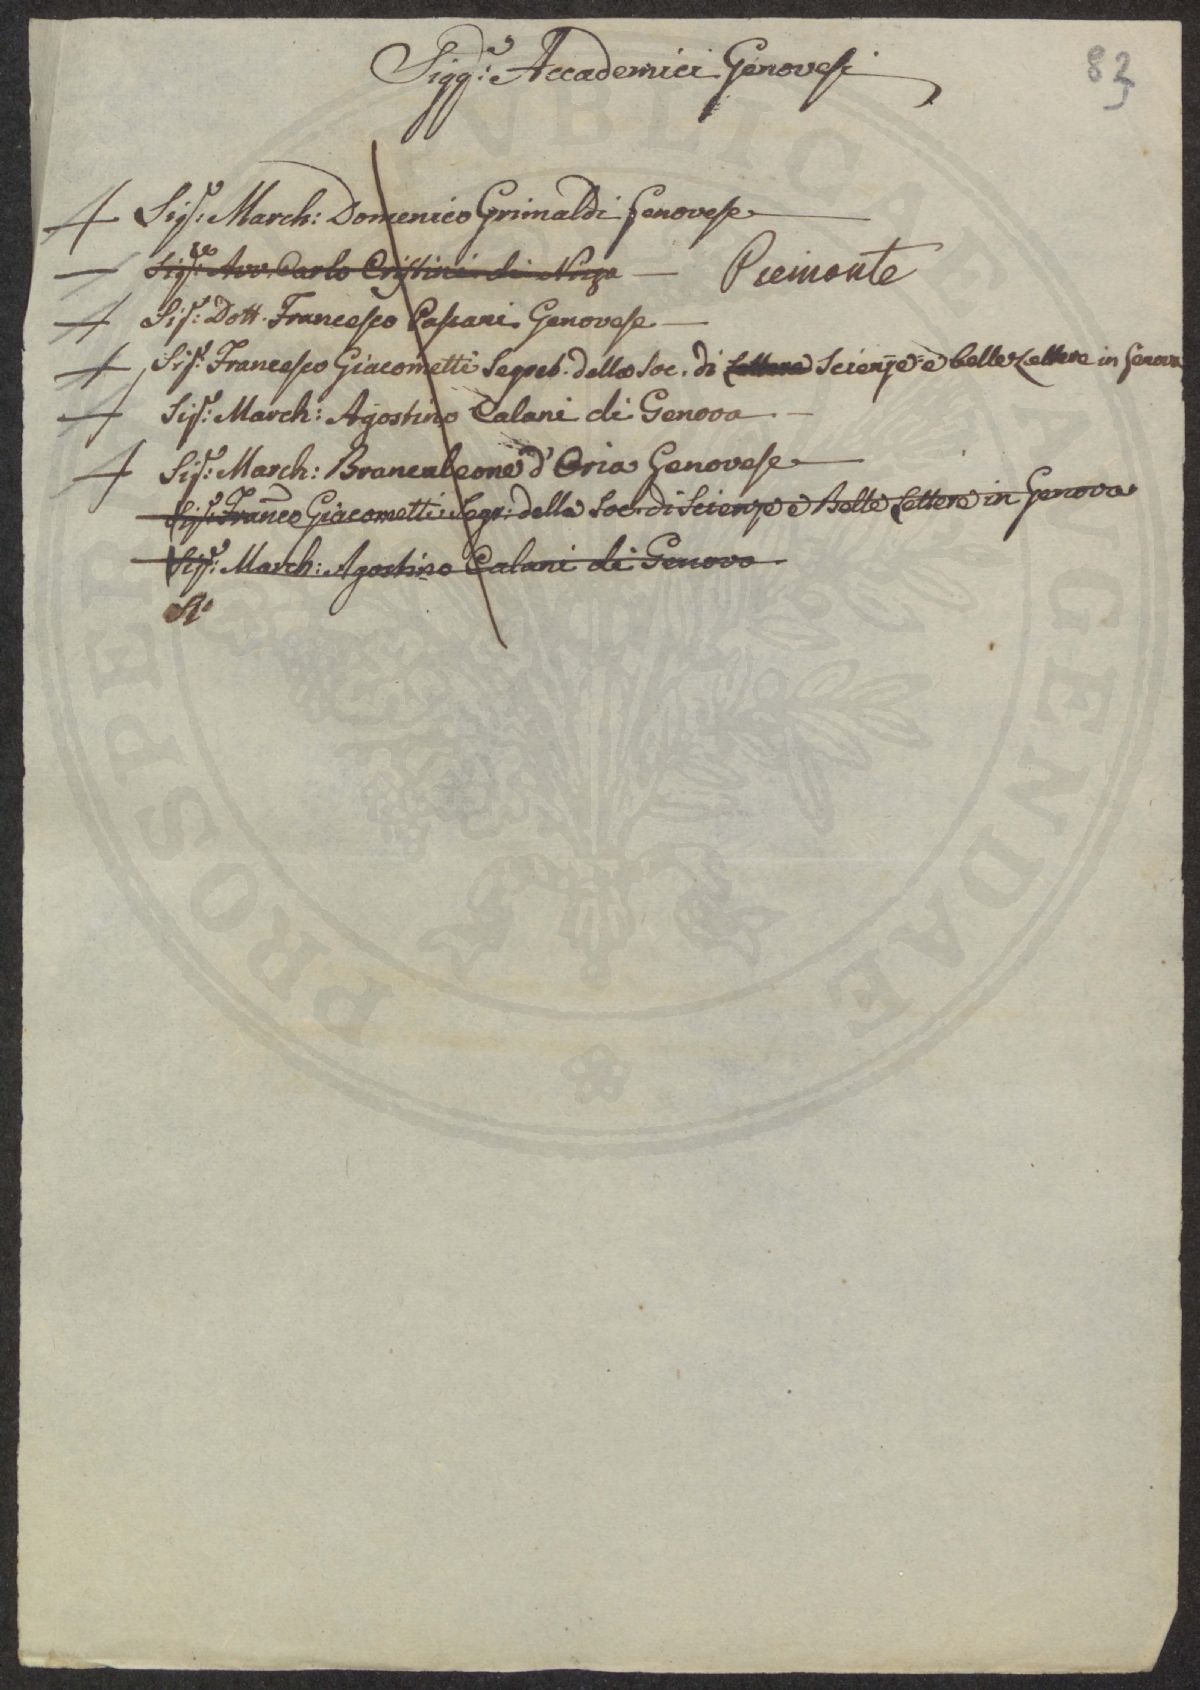 Sigg.i Accademici Genovesi
83
Sig.r March: Domenico Grimaldi Genovese
Sig.r Avv. Carlo Cristini di Nizza — Piemonte
Sig.r Dott. Francesco Pasani Genovese
Sig.r Francesco Giacometti Segret. della Soc. di Lettere Scienze e belle Lettere in Genova
Sig.r March: Agostino Calani di Genova
Sig.r March: Brancaleone d'Oria Genovese
Sig.r Franco Giacometti Segr: della Soc. di Scienze e Belle Lettere in Genova
Sig.r March: Agostino Calani di Genova
PROSPERITATI PUBLICAE AUGENDAE